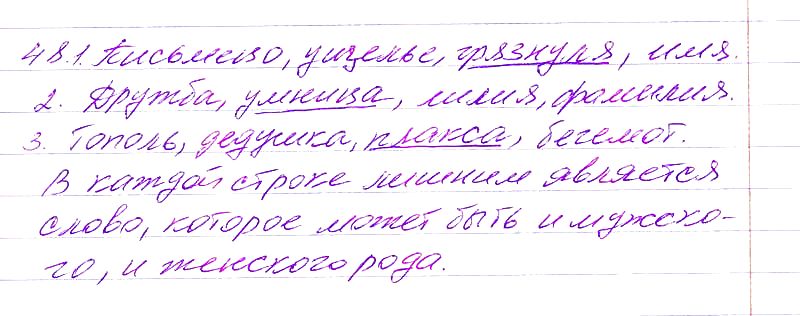 48.1. Письмецо, ущелье, грязнуля, имя.
2. Дружба, умница, лилия, фамилия.
3. Тополь, дедушка, плакса, бегемот.
В каждой строке лишним является
слово, которое может быть и мужско-
го, и женского рода.